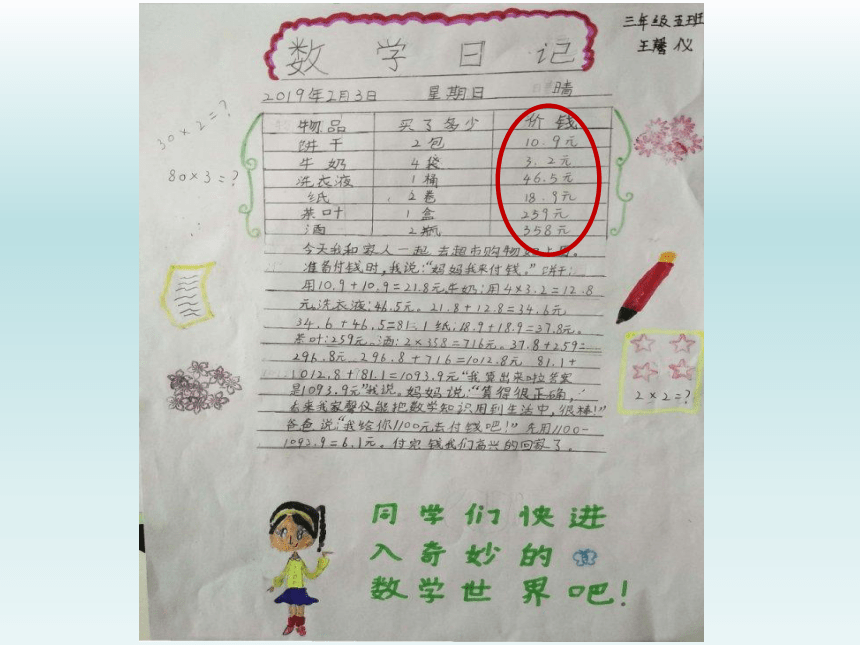 三年级五班
王馨仪
数学日记
2019年2月3日 星期日 晴
30×2=?
80×3=?
物品 买了多少 价钱
饼干 2包 10.9元
牛奶 4袋 3.2元
洗衣液 1桶 46.5元
纸 2卷 18.9元
茶叶 1盒 259元
酒 2瓶 358元
今天我和家人一起去超市购物如上图。
准备付钱时,我说:“妈妈我来付钱。”饼干:
用10.9+10.9=21.8元,牛奶:用4×3.2=12.8
元。洗衣液:46.5元。21.8+12.8=34.6元
34.6+46.5=81.1 纸:18.9+18.9=37.8元。
茶叶:259元。酒:2×358=716元。37.8+259=
296.8元 296.8+716=1012.8元 81.1+
1012.8+81.1=1093.9元“我算出来啦答案
是1093.9元”我说。妈妈说:“算得很正确,
看来我家馨仪能把数学知识用到生活中,很棒!”
爸爸说:“我给你1100元去付钱吧!”先用1100-
1092.9=6.1元。付完钱我们高兴的回家了。
2×2=?
同学们快进
入奇妙的
数学世界吧!